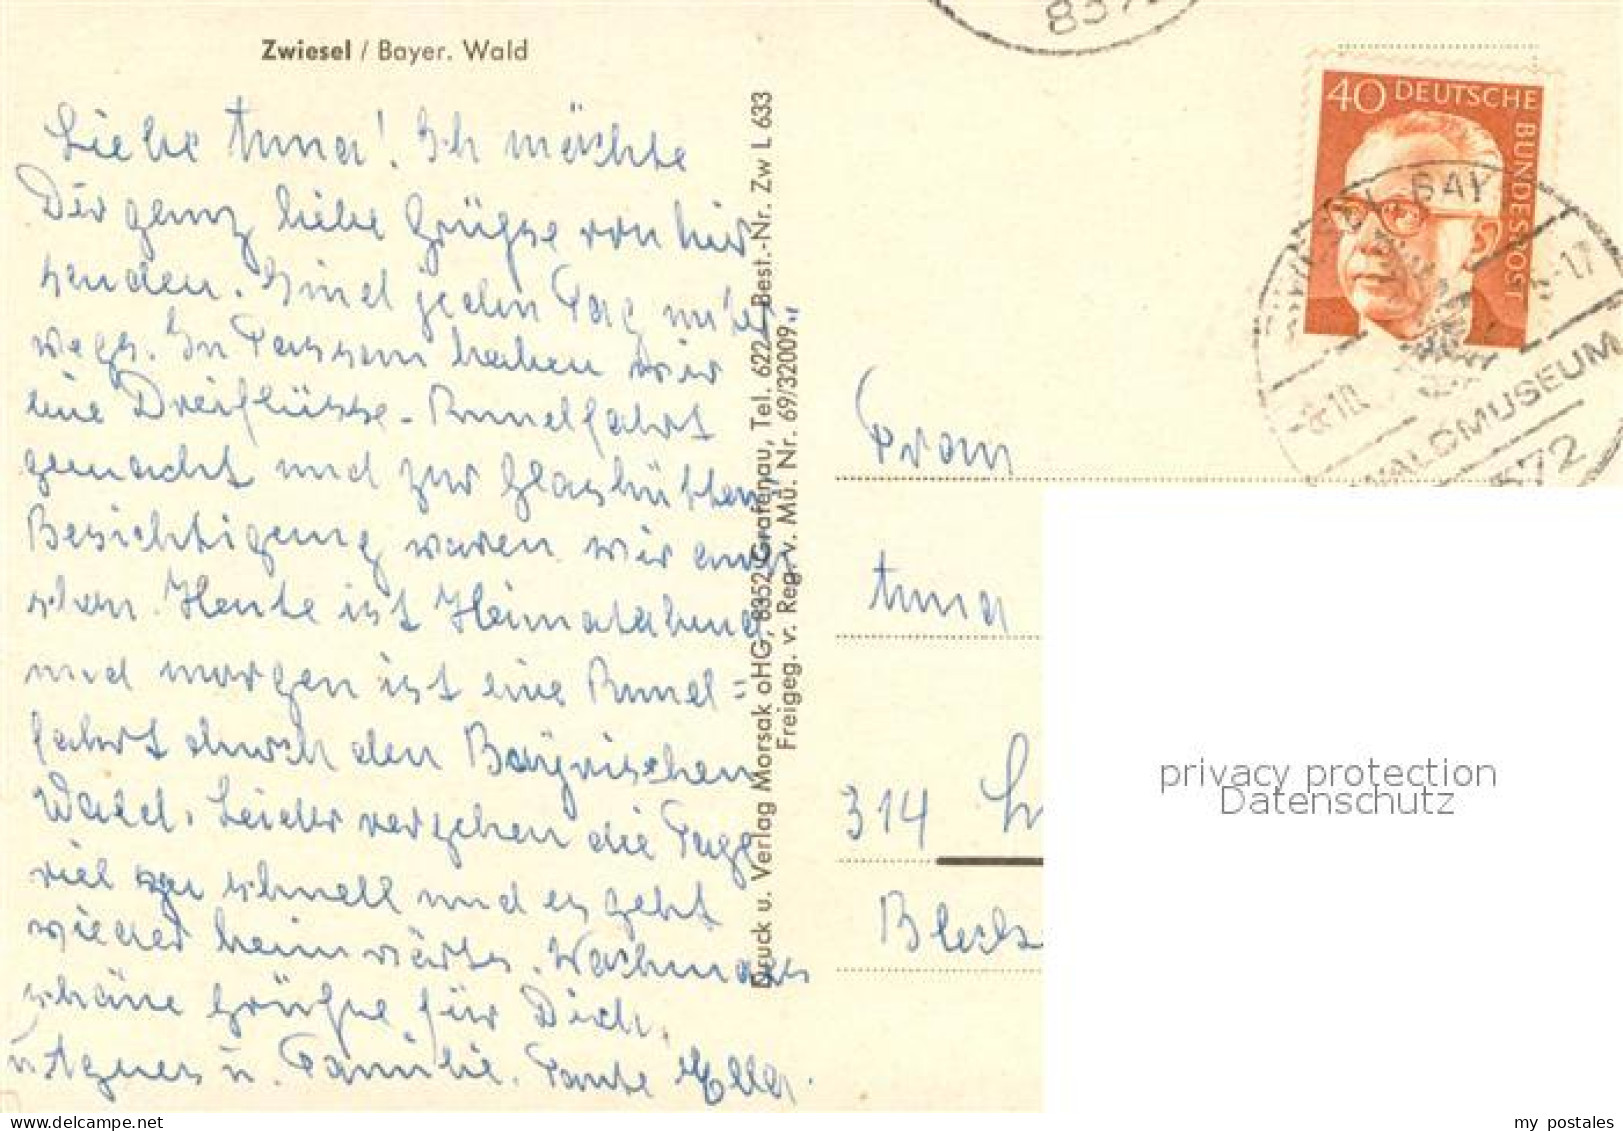 Zwiesel / Bayer. Wald
Liebe Anna! Ich möchte
Dir ganz liebe Grüsse von hier
senden. Sind jeden Tag unter=
wegs. In Passau haben wir
eine Dreiflüsse-Rundfahrt
gemacht und zur Glashütten=
Besichtigung waren wir auch
schon. Heute ist Heimatabend
und morgen ist eine Rund=
fahrt durch den Bayrischen
Wald. Leider vergehen die Tage
viel zu schnell und es geht
wieder heimwärts. Nochmals
schöne Grüsse für Dich,
u. Agnes u. Familie. Tante Ella.
Druck u. Verlag Morsak oHG, 8352 Grafenau, Tel. 622 – Best.-Nr. Zw L 633
Freigeg. v. Reg. v. Mü. Nr. 69/32009
40 DEUTSCHE BUNDESPOST
BAY
-17
WALDMUSEUM
8372
Frau
Anna
314
privacy protection
Datenschutz
my postales